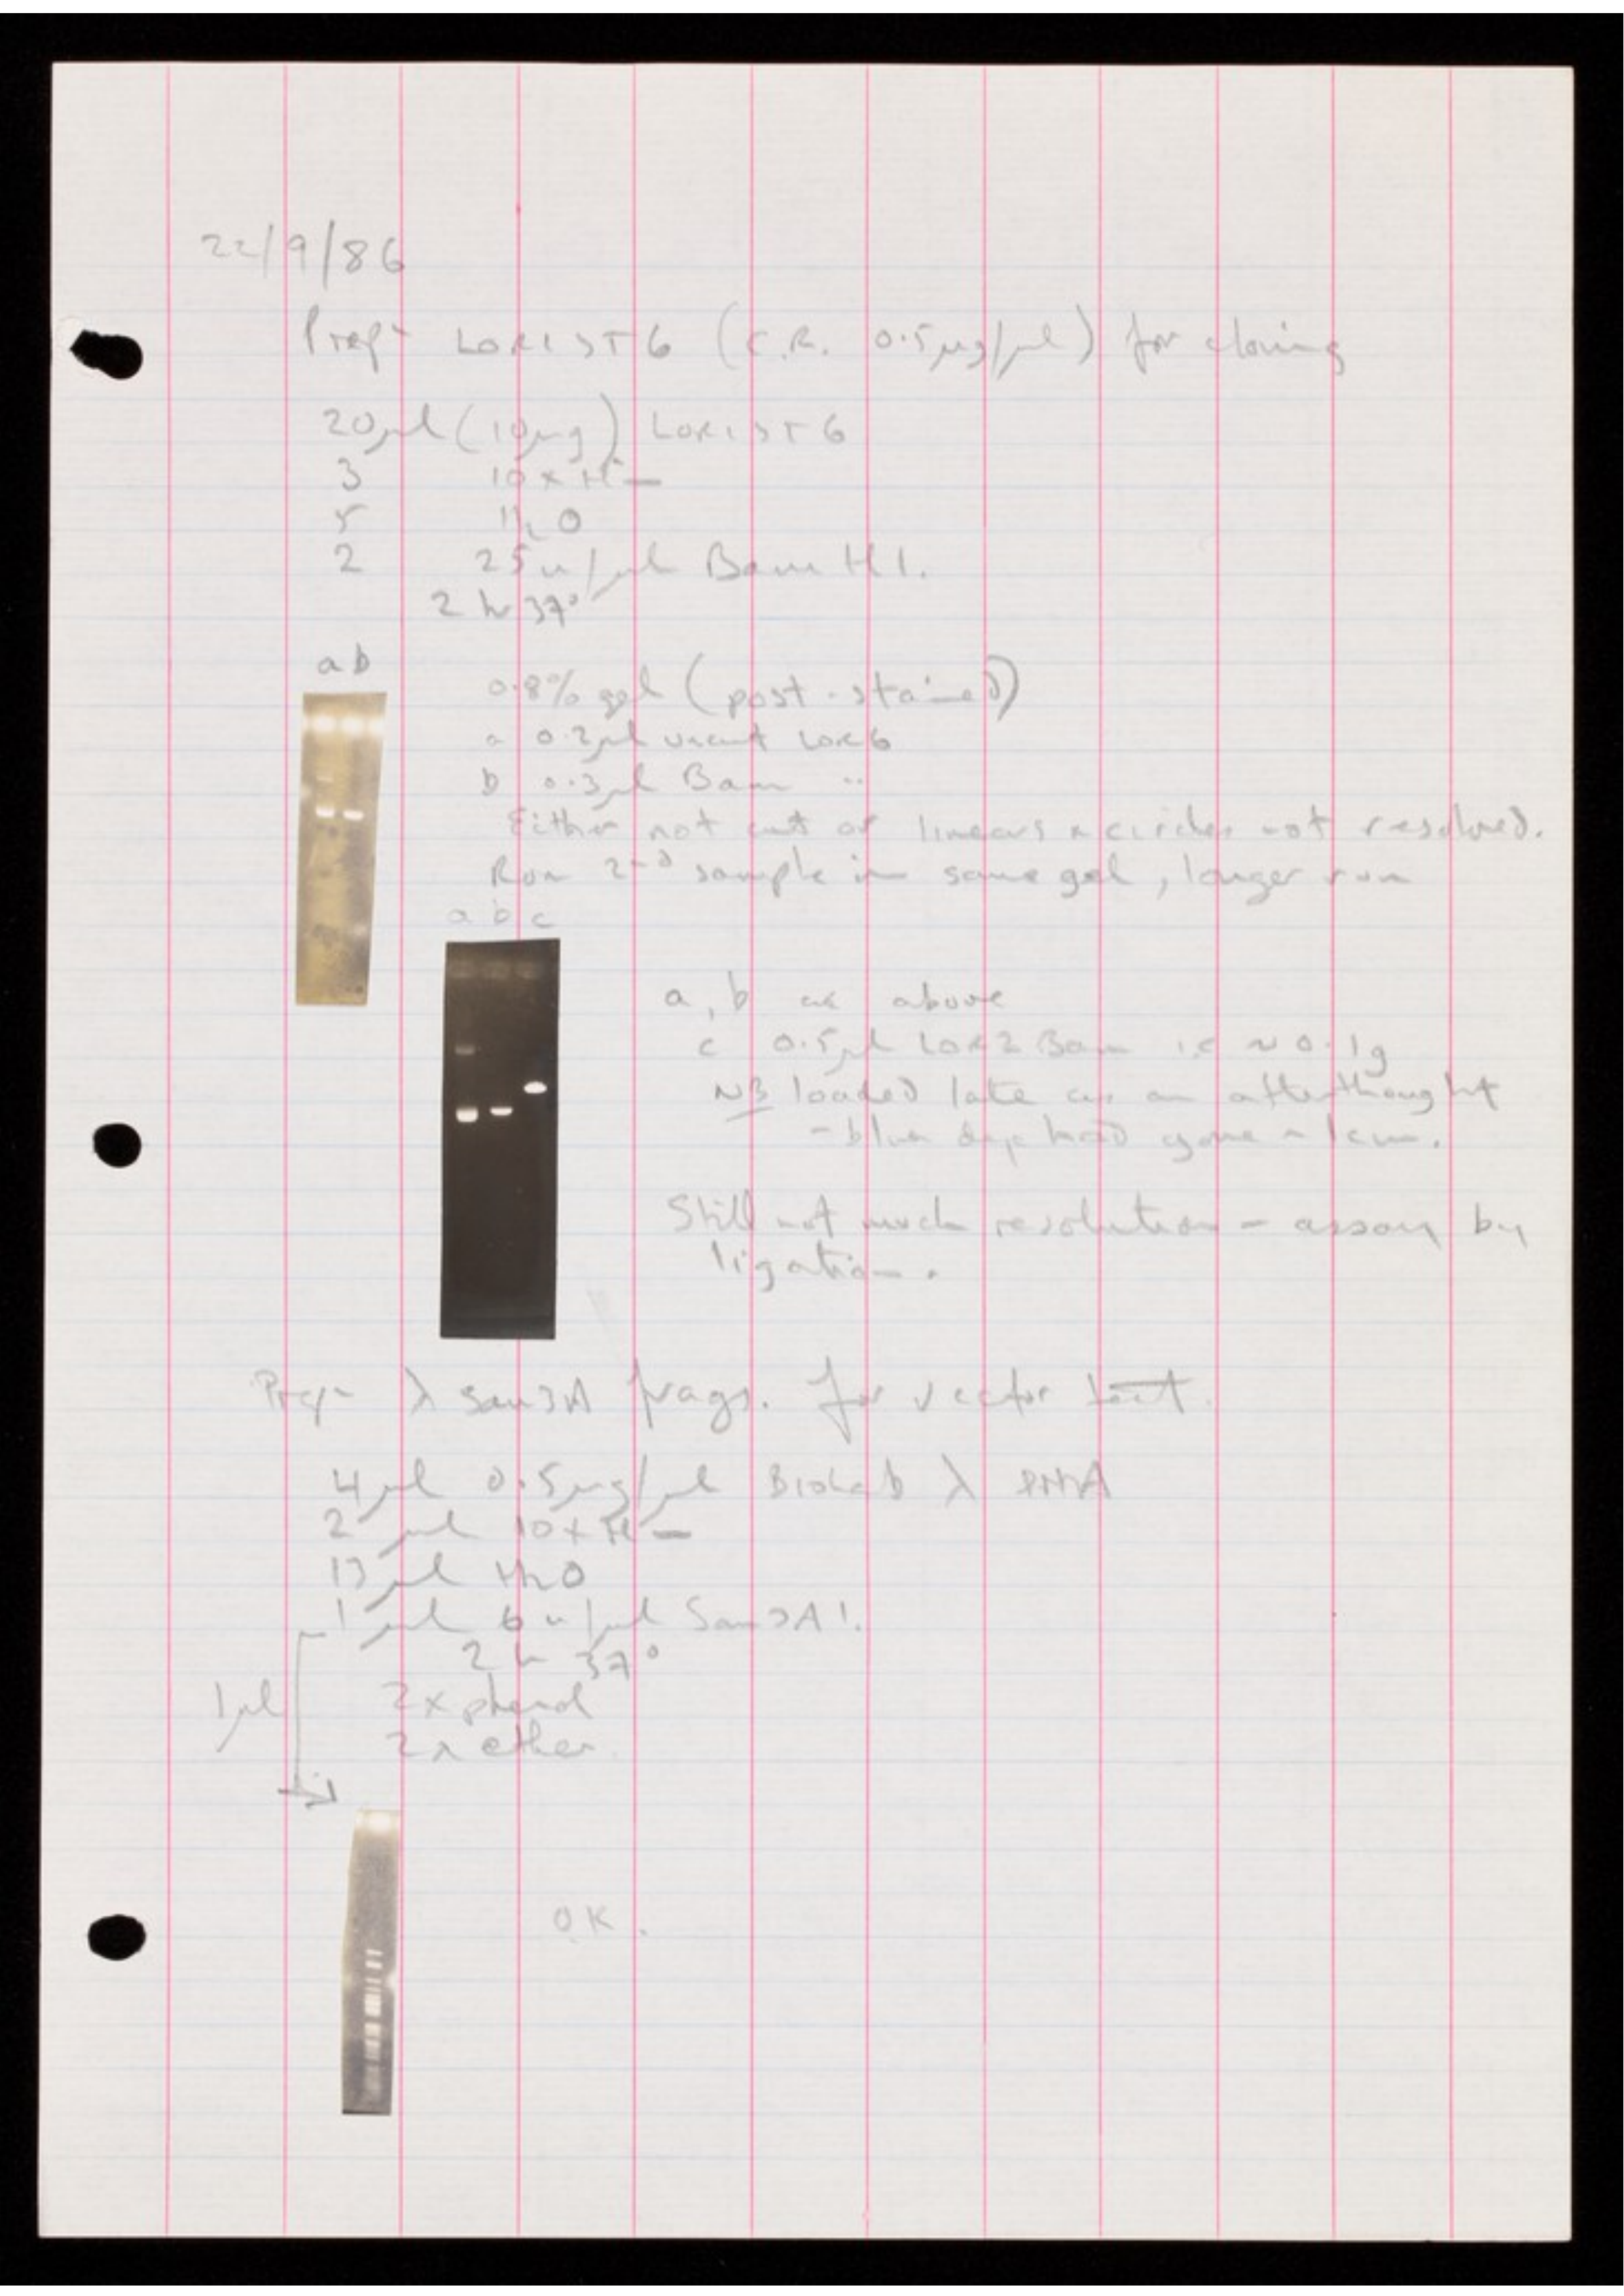 22/9/86
Prepn LORIST6 (C.R. 0.5µg/µl) for cloning
20µl (10µg) LORIST6
3 10 x H-
5 H2O
2 25u/µl Bam H1.
2 hr 37°
a b
0.8% gel (post-stained)
a 0.2µl uncut Lor6
b 0.3µl Bam "
Either not cut or linears & circles not resolved.
Run 2nd sample in same gel, longer run
a b c
a, b as above
c 0.5µl Lor2 Bam i.e ~ 0.1g
NB loaded late as an afterthought
- blue dye had gone ~ 1cm.
Still not much resolution - assay by
ligation.
Prepn λ Sau3A frags. for vector test.
4µl 0.5µg/µl BioLab λ DNA
2 µl 10 x H-
13 µl H2O
1 µl 6 u/µl Sau3A1.
2 h 37°
1µl
2x phenol
2x ether
OK.